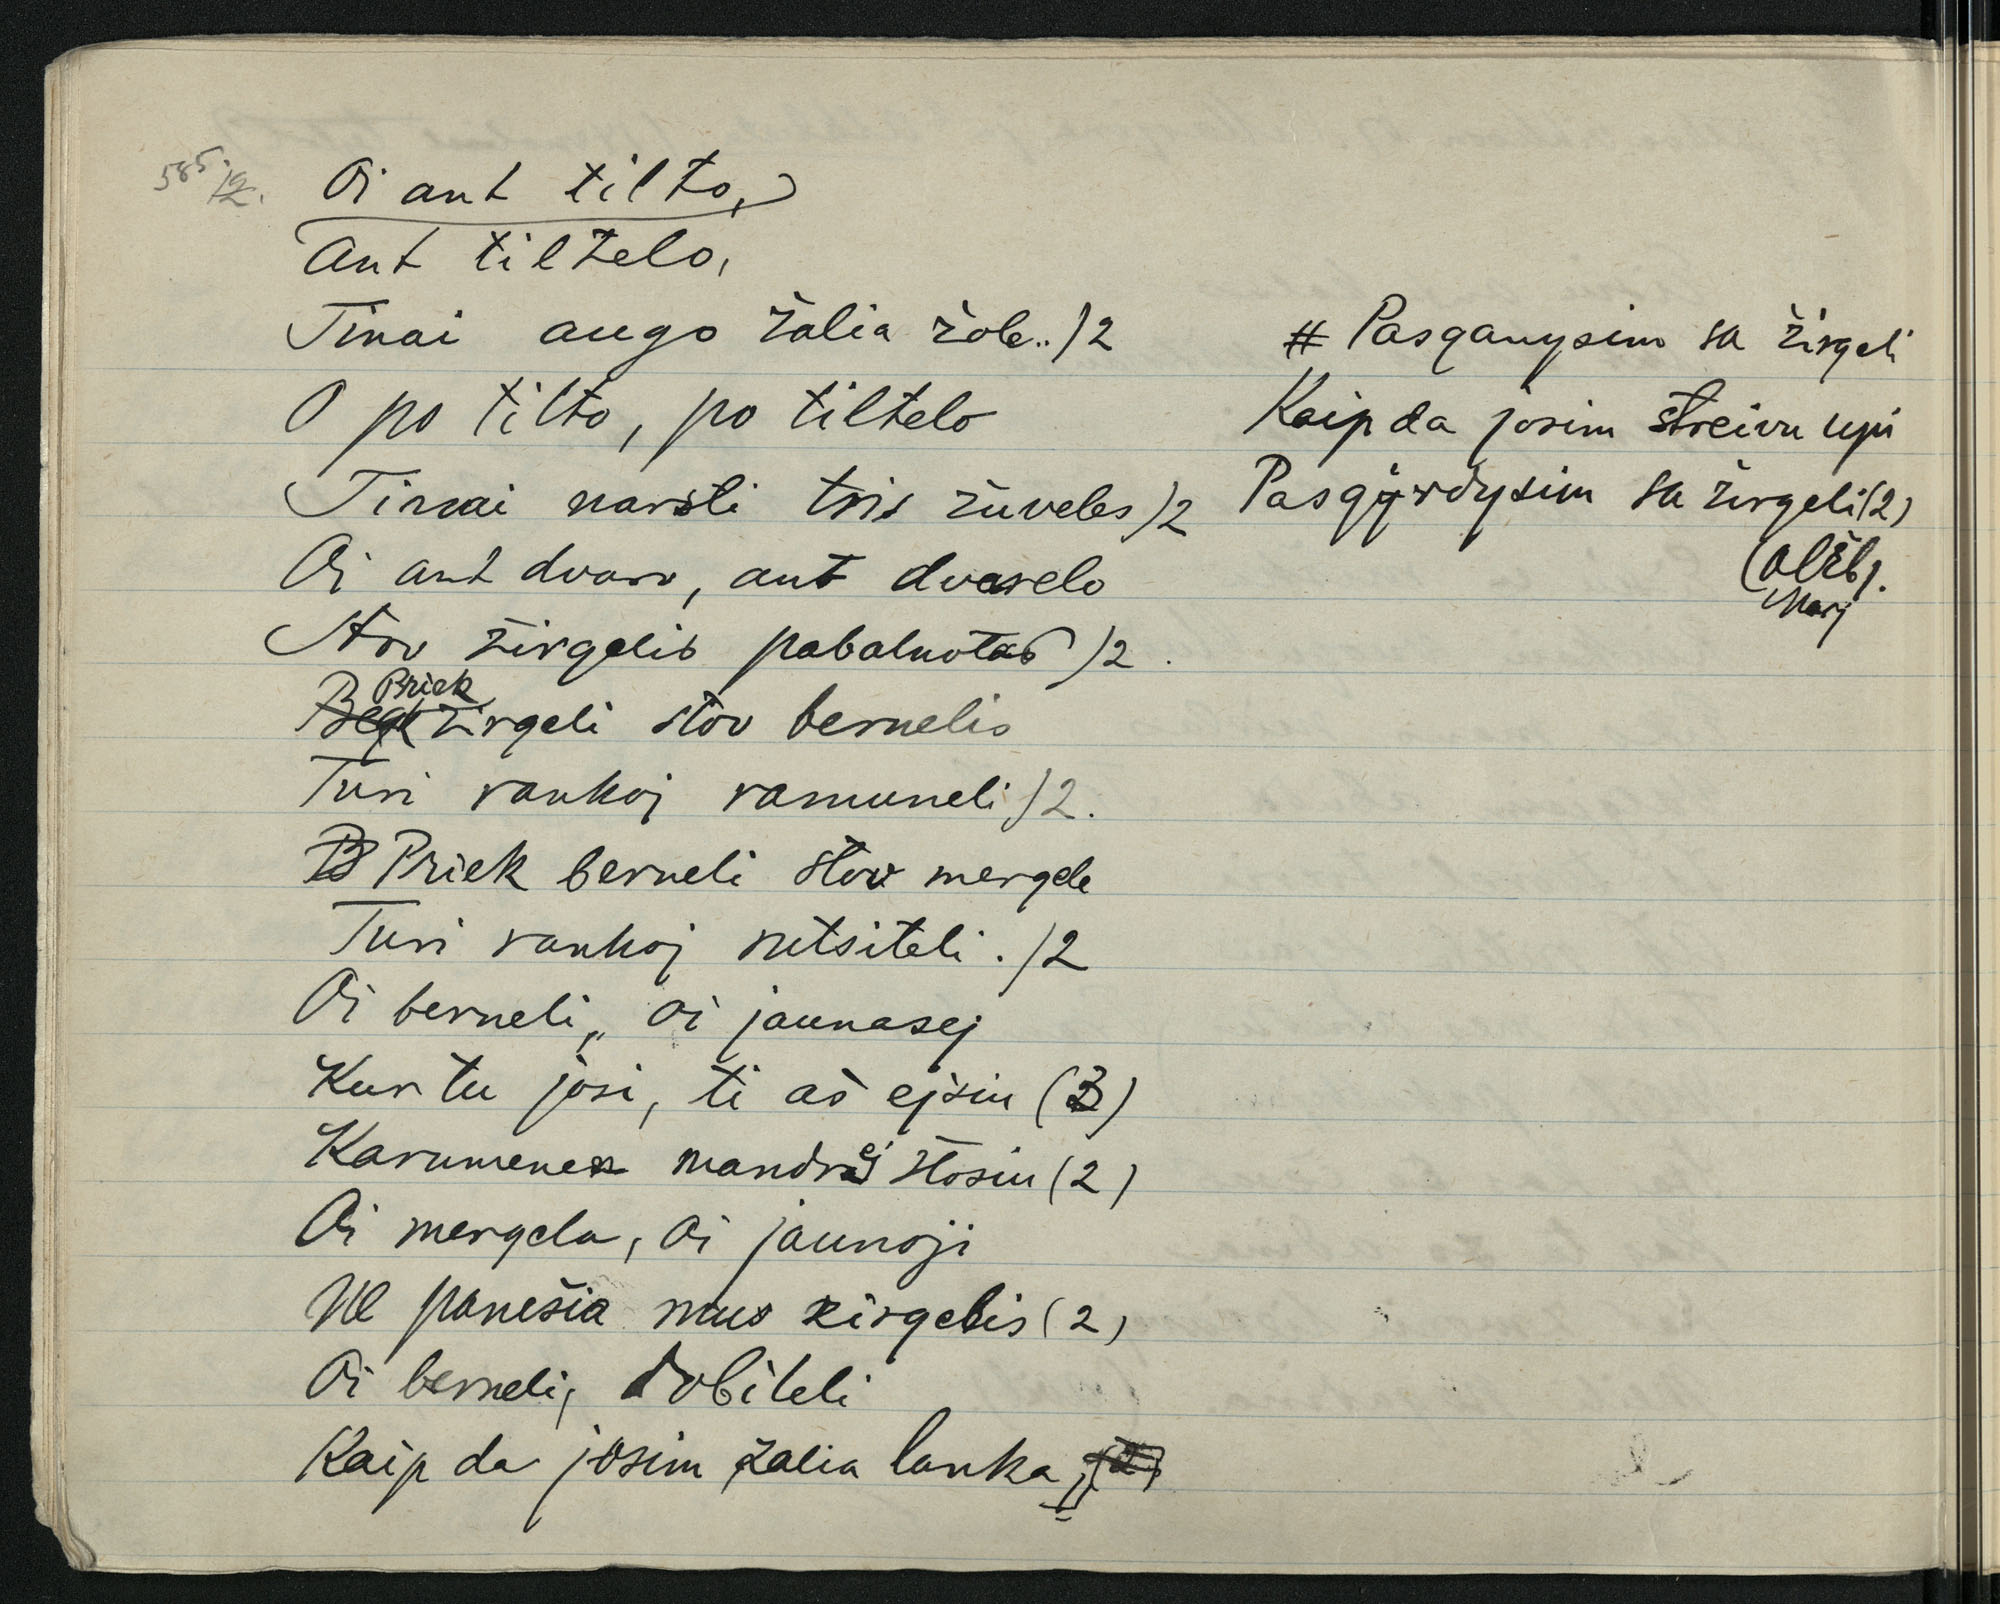 585/12.
Oi ant tilto,
Ant tiltelo,
Tinai augo žalia žole..)2
O po tilto, po tiltelo
Tinai narsti tris žuveles)2
Oi ant dvaro, ant dvarelo
Stov žirgelis pabalnotas)2.
Priek žirgeli stov bernelis
Turi rankoj ramuneli)2.
Priek berneli stov mergele
Turi rankoj rutsiteli.)2
Oi berneli, oi jaunasej
Kur tu josi, ti aš ejsiu (2)
Karumene mandrej stosiu (2)
Oi mergela, oi jaunoji
Ne panešia mus žirgelis (2)
Oi berneli, dobileli
Kaip da josim žalia lanka
# Pasganysim sa žirgeli
Kaip da josim streivu upi
Pasgirdysim sa žirgeli (2)